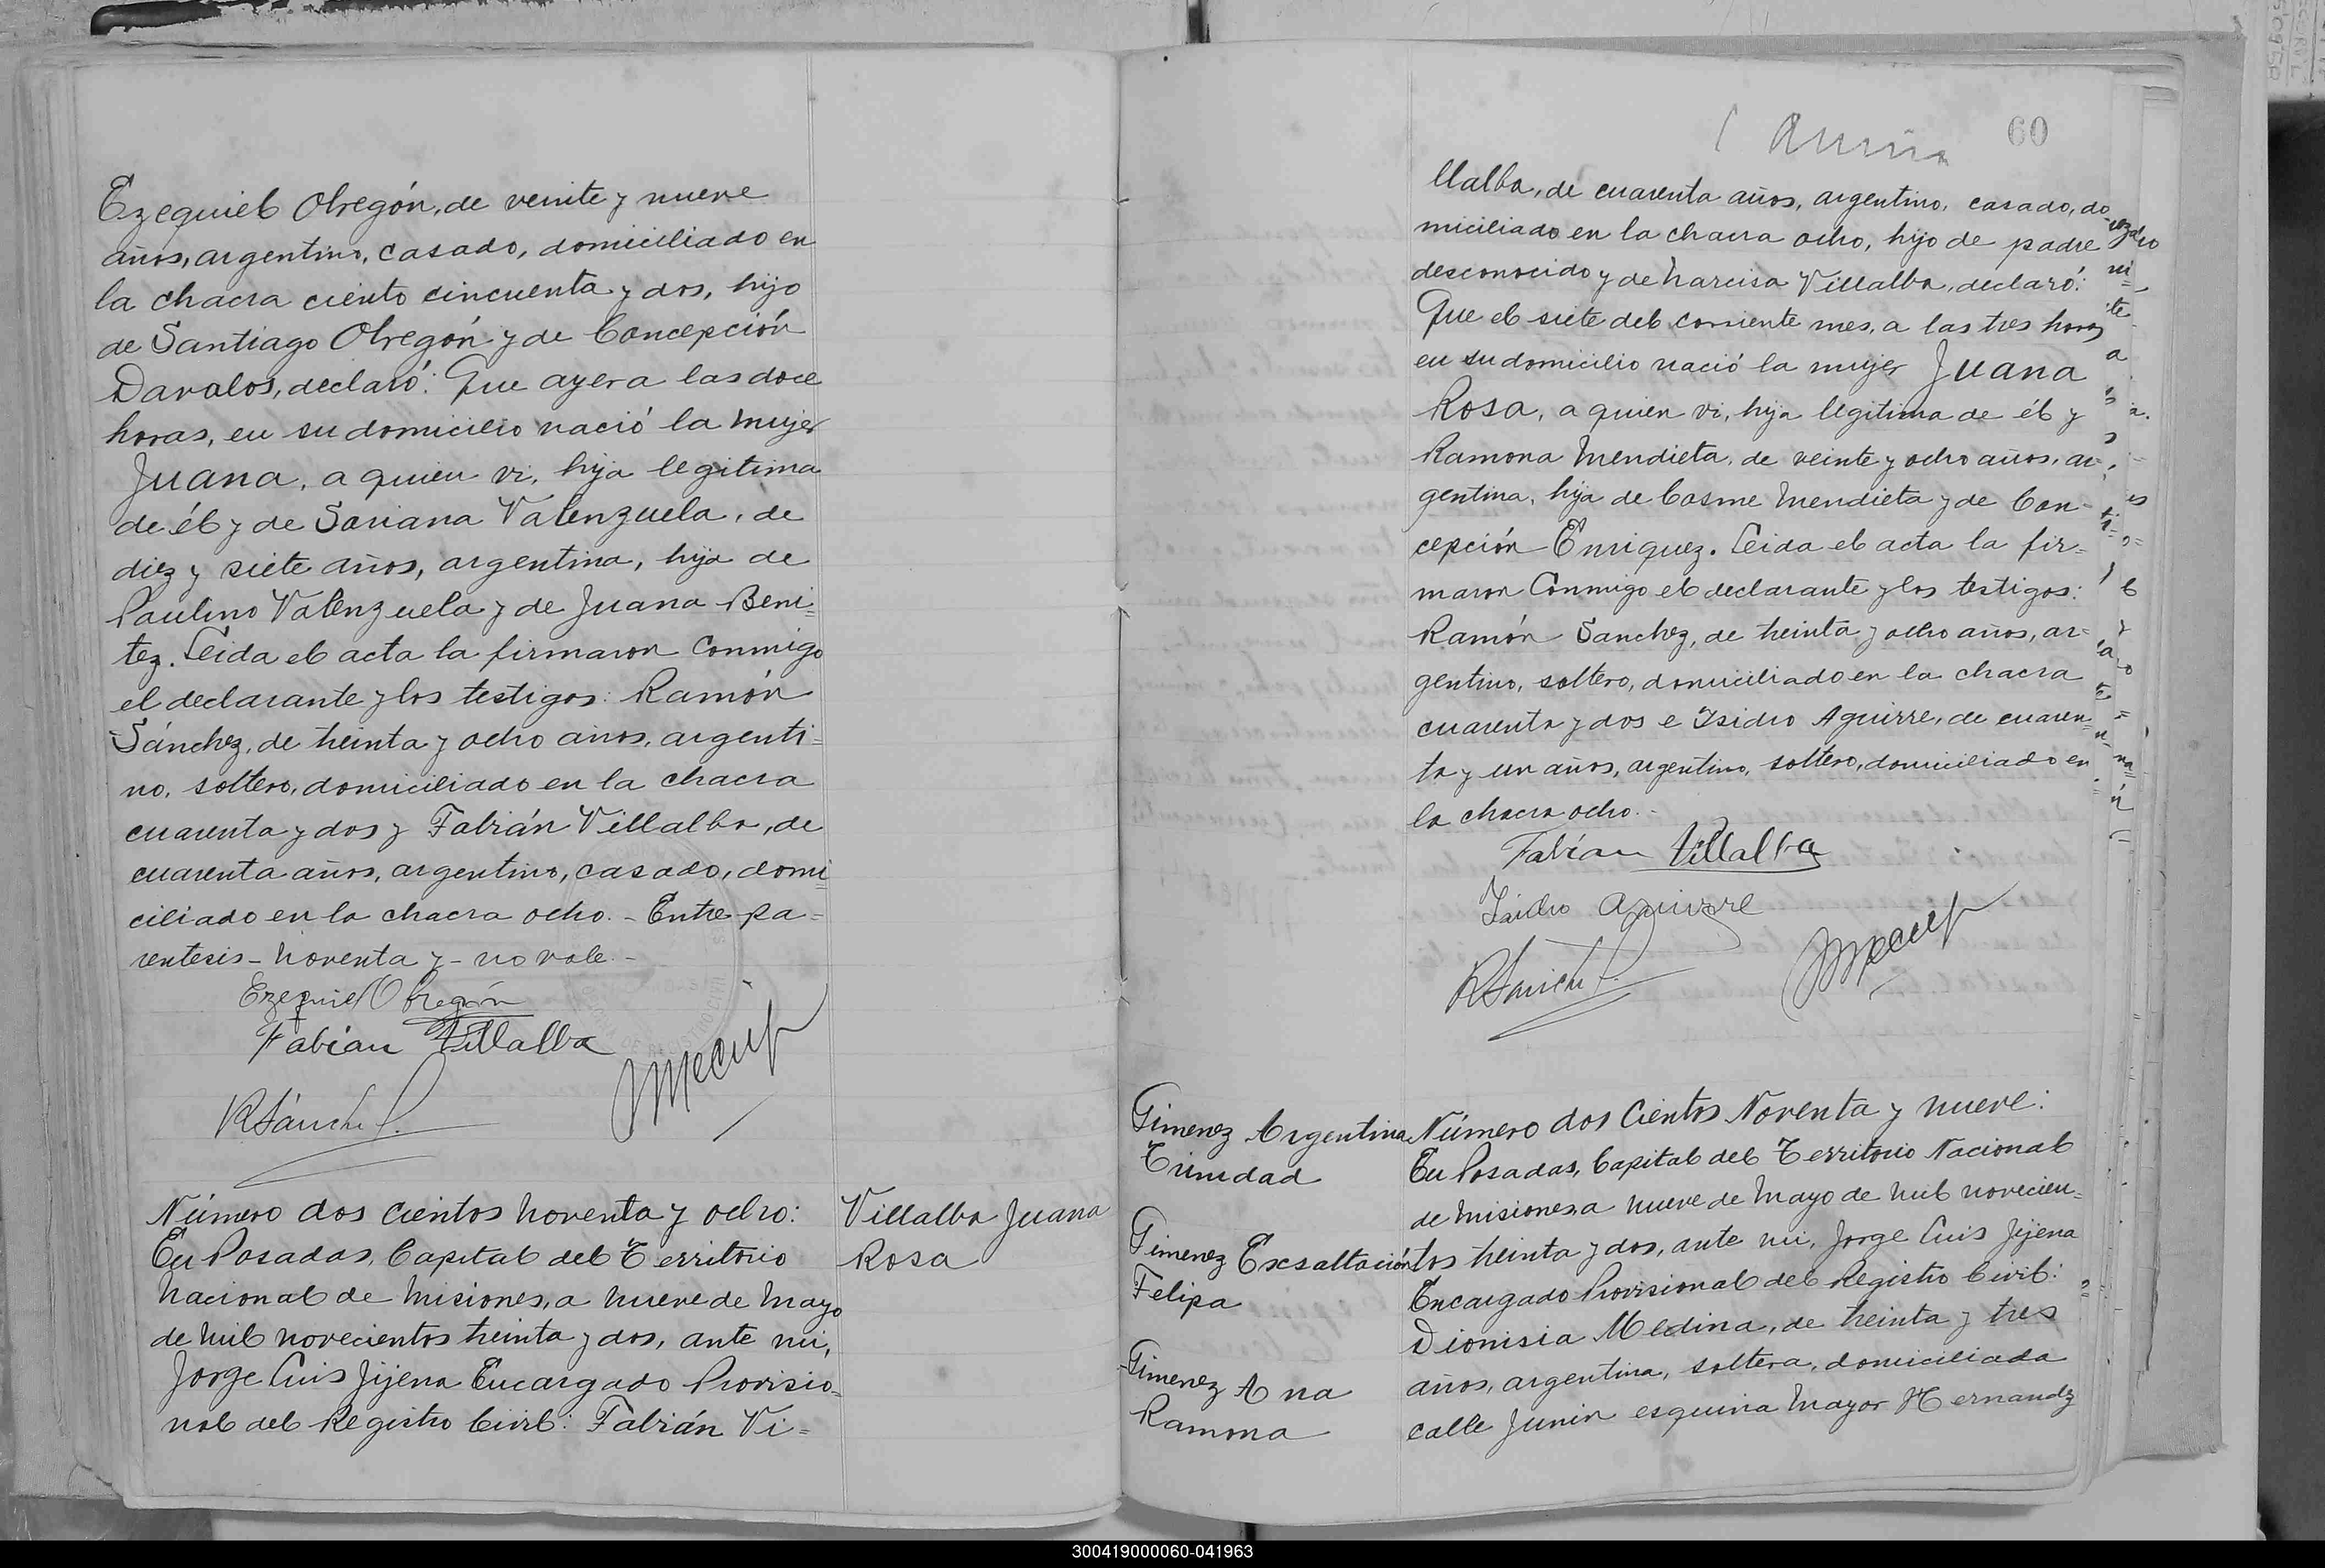 Ezequiel Obregón, de veinte y nueve
años, argentino, casado, domiciliado en
la chacra ciento cincuenta y dos, hijo
de Santiago Obregón y de Concepción
Davalos, declaró: Que ayer a las doce
horas, en su domicilio nació la mujer
Juana, a quien vi, hija legitima
de él y de Sariana Valenzuela, de
diez y siete años, argentina, hija de
Paulino Valenzuela y de Juana Beni=
tez. Leida el acta la firmaron conmigo
el declarante y los testigos: Ramón
Sánchez, de treinta y ocho años, argenti=
no, soltero, domiciliado en la chacra
cuarenta y dos y Fabián Villalba, de
cuarenta años, argentino, casado, domi=
ciliado en la chacra ocho. - Entre pa=
rentesis - noventa y - no vale. -
Ezequiel Obregón
Fabián Villalba
RSánchez
Número dos cientos noventa y ocho:
En Posadas, Capital del Territorio
Nacional de Misiones, a nueve de Mayo
de mil novecientos treinta y dos, ante mi,
Jorge Luis Jijena Encargado Provisio=
nal del Registro Civil: Fabián Vi=
Villalba Juana
Rosa
60
llalba, de cuarenta años, argentino, casado, do
miciliado en la chacra ocho, hijo de padre
desconocido y de Narcisa Villalba, declaró:
Que el siete del corriente mes, a las tres horas
en su domicilio nació la mujer Juana
Rosa, a quien vi, hija legitima de él y
Ramona Mendieta, de veinte y ocho años, ar=
gentina, hija de Cosme Mendieta y de Con-
cepción Enriquez. Leida el acta la fir=
maron conmigo el declarante y los testigos:
Ramón Sanchez, de treinta y ocho años, ar=
gentino, soltero, domiciliado en la chacra
cuarenta y dos e Isidro Aguirre, de cuaren=
ta y un años, argentino, soltero, domiciliado en
la chacra ocho. -
Fabián Villalba
Isidro Aguirre
RSánchez
Gimenez Argentina
Trinidad
Gimenez Exsaltación
Felipa
Gimenez Ana
Ramona
Número dos Cientos Noventa y nueve:
En Posadas, Capital del Territorio Nacional
de Misiones, a nueve de Mayo de mil novecien=
tos treinta y dos, ante mi, Jorge Luis Jijena
Encargado Provisional del Registro Civil:
Dionisia Medina, de treinta y tres
años, argentina, soltera, domiciliada
calle Junin esquina Mayor Hernandz
300419000060-041963